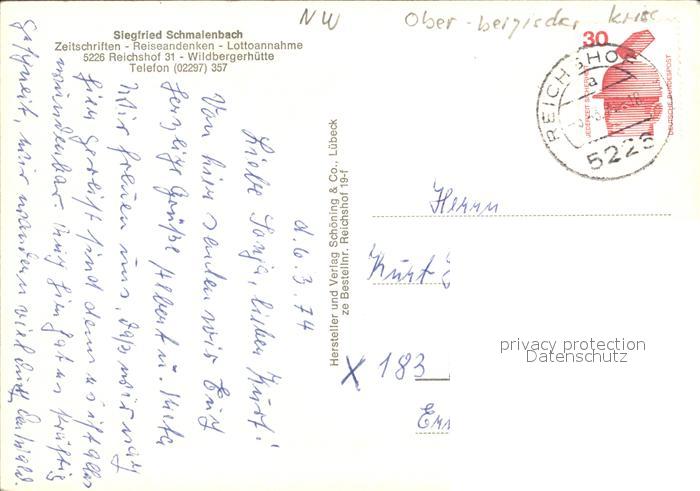 NW Ober-bergischer kreis
Siegfried Schmalenbach
Zeitschriften - Reiseandenken - Lottoannahme
5226 Reichshof 31 - Wildbergerhütte
Telefon (02297) 357
d. 6.3.74
Liebe Sonja, lieber Kurt!
Von hier senden wir Euch
herzliche Grüße Albert u. Meta
Wir freuen uns, daß wir nach
hier gereist sind denn es ist alles
wunderbar. Auch hier hat es kräftig
geschneit, wir wandern viel durch den Wald.
Hersteller und Verlag Schöning & Co., Lübeck
ze Bestellnr. Reichshof 19-f
30
JEDERZEIT SICHERHEIT
DEUTSCHE BUNDESPOST
REICHSHOF
a
5226
Herrn
Kurt
X 183
privacy protection
Datenschutz